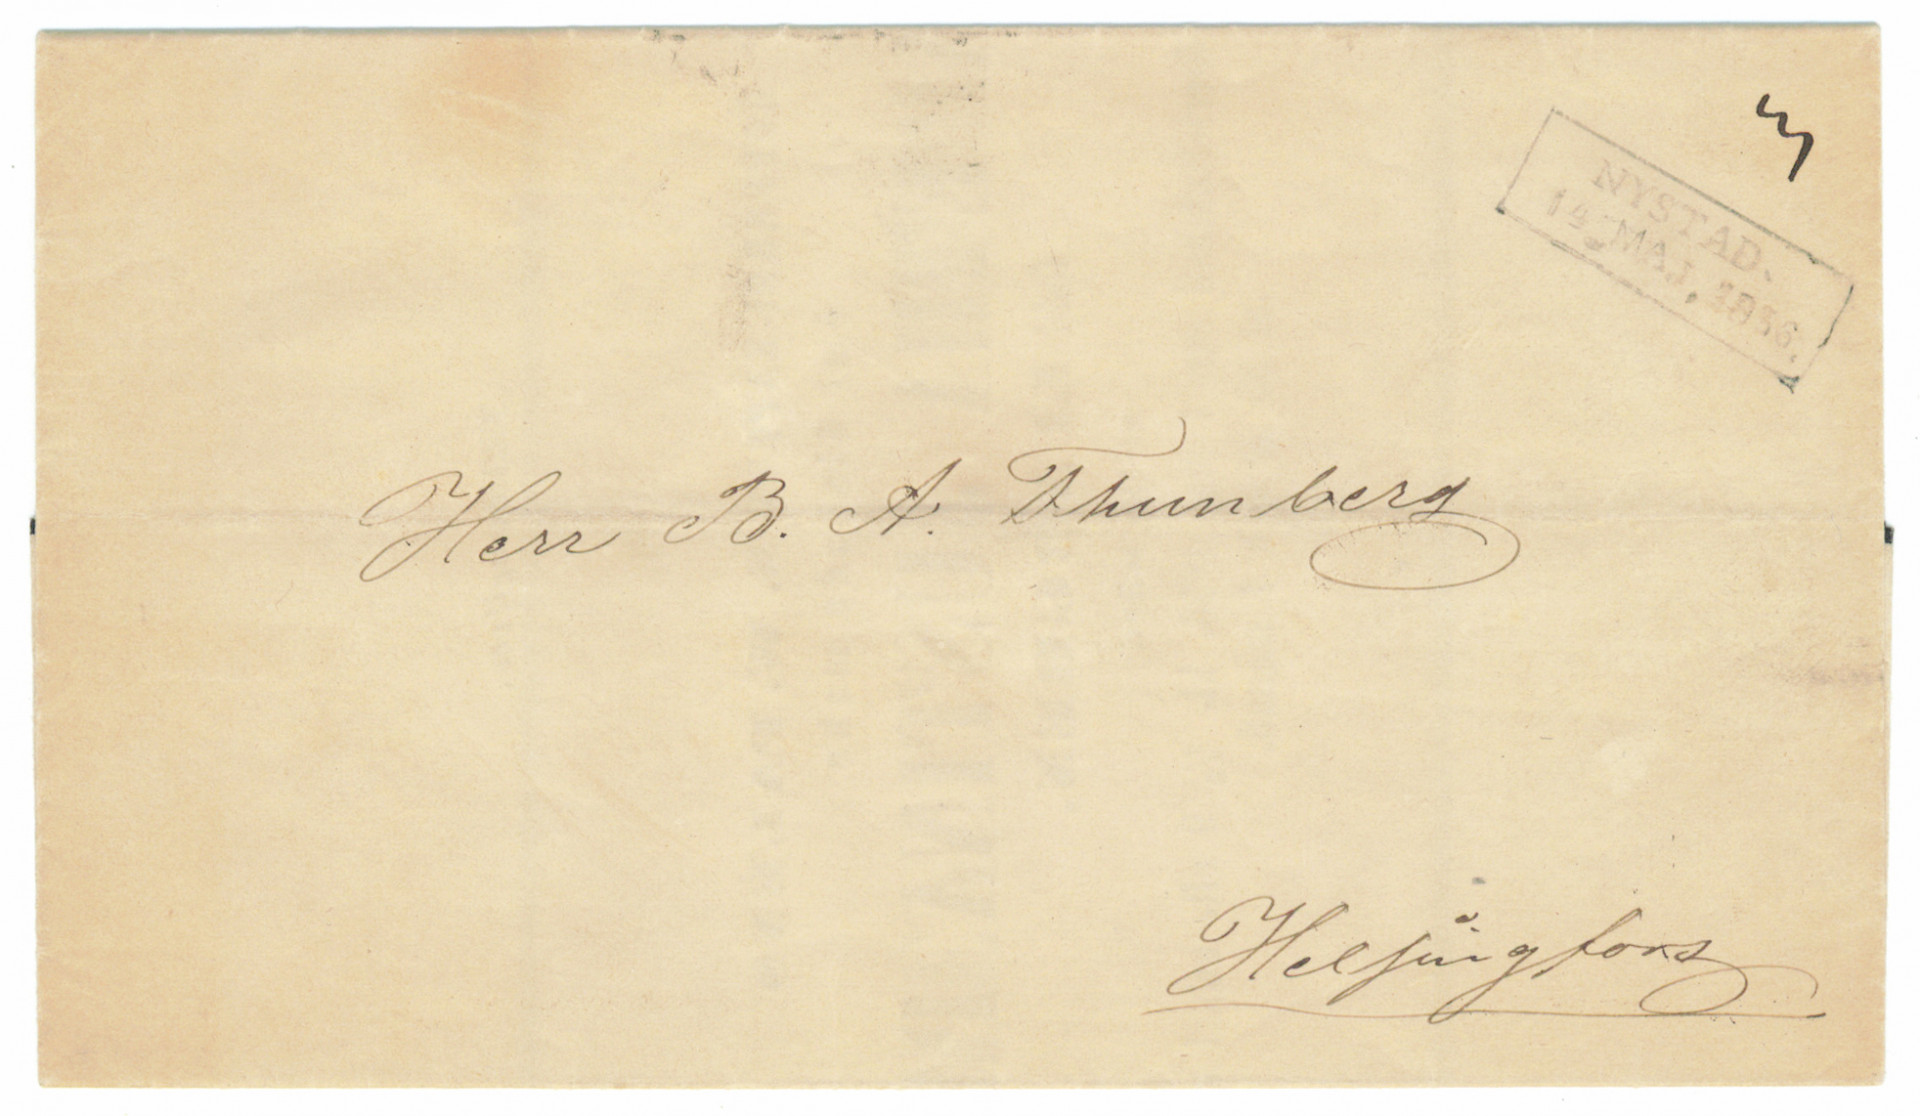 NYSTAD.
14 MAJ. 1856.
Herr B. A. Thunberg
Helsingfors